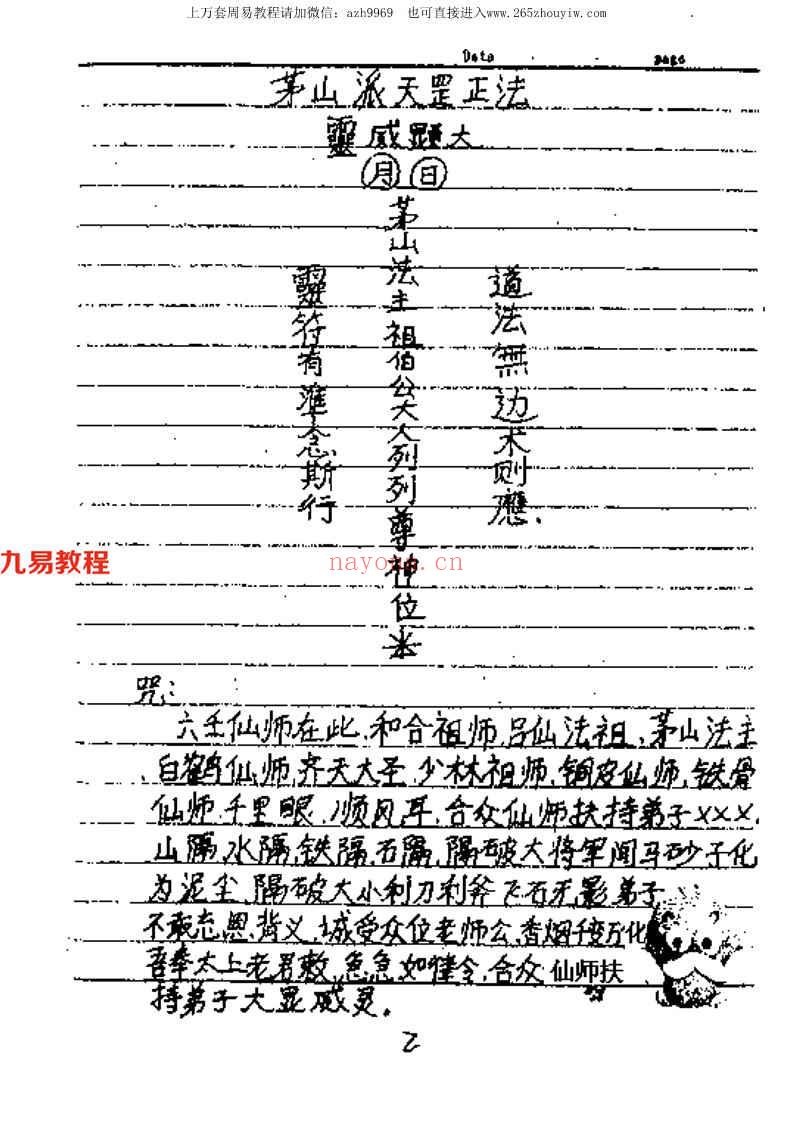 上万套周易教程请加微信：azh9969　也可直接进入www.265zhouyiw.com
Date
page
茅山派天罡正法
靈威顕大
月日
道法無边术则應.
茅山法主祖伯公大人列列尊神位
靈符有準念斯行
九易教程
nayona.cn
咒：
六壬仙师在此,和合祖师,吕仙法祖,茅山法主
白鹤仙师,齐天大圣,少林祖师,铜皮仙师,铁骨
仙师,千里眼,顺风耳,合众仙师扶持弟子×××.
山隔,水隔,铁隔,石隔,隔破大将军闻马砂子化
为泥尘,隔破大小利刀利斧飞石无影弟子
不敢忘恩,背义,城受众位老师公,香烟千变万化
吾奉太上老君敕,急急如律令,合众仙师扶
持弟子大显威灵.
2